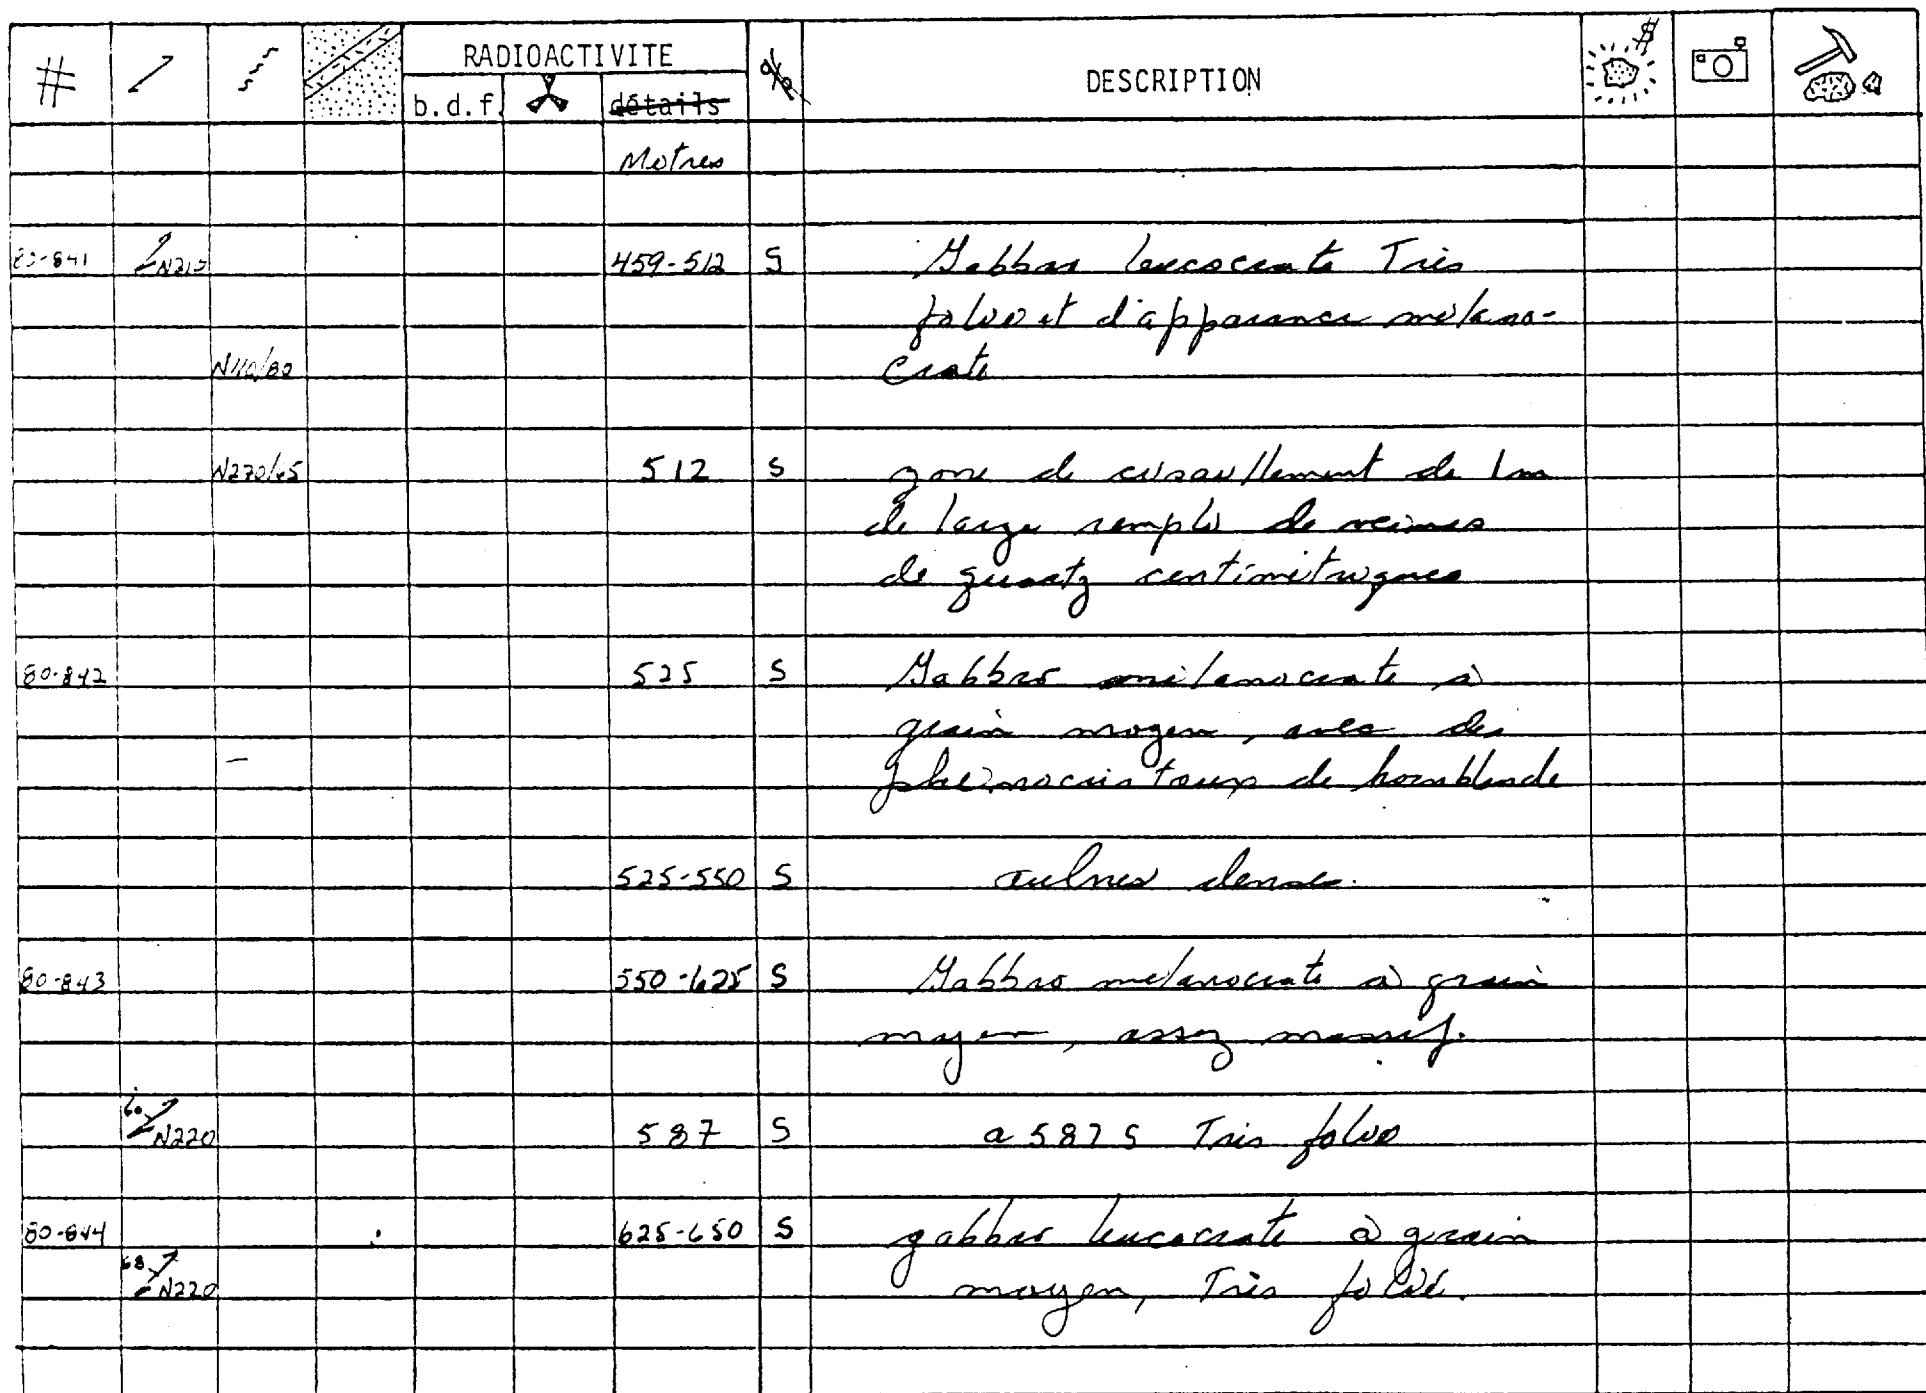 # $
RADIOACTIVITE % DESCRIPTION
b.d.f. détails
Metres
80-841 N215 459-512 S Gabbro leucocrate Très
folié et d'apparence mélano-
N110/80 crate
N270/65 512 S zone de cisaillement de 1m
de large rempli de veines
de quartz centimétriques
80-842 525 S Gabbro mélanocrate à
grain moyen, avec des
phénocristaux de hornblende
525-550 S aulnes denses.
80-843 550-625 S Gabbro melanocrate à grain
moyen, assez massif.
60 N220 587 S a 587 S Très folié
80-844 625-650 S gabbro leucocrate à grain
68 N220 moyen, Très folié.